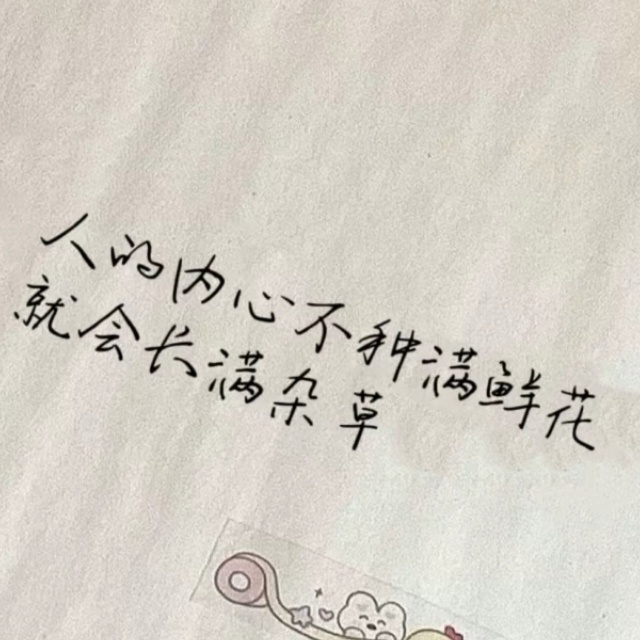 人的内心不种满鲜花
就会长满杂草